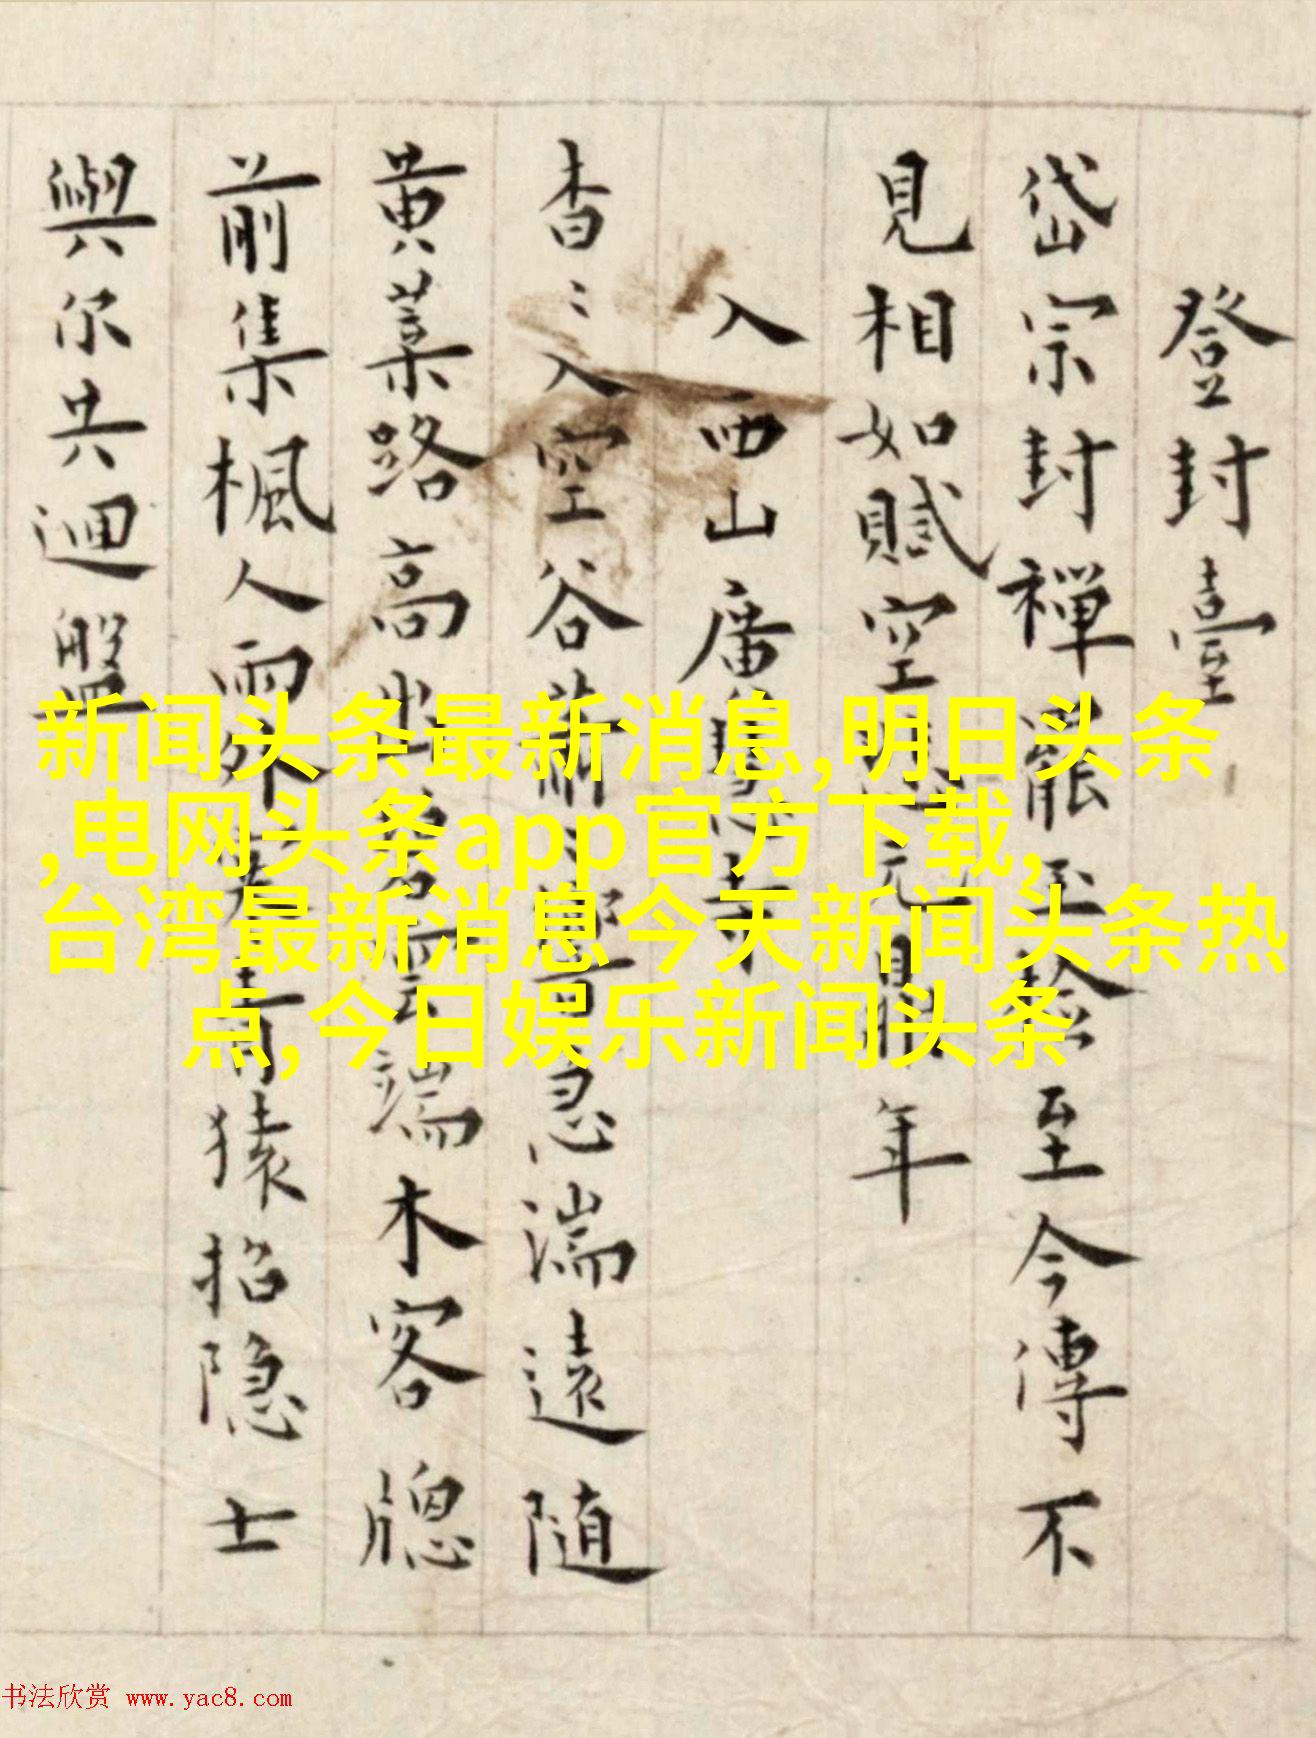 登封臺
岱宗封禪罷玉檢至今傳不
見相如賦空元鼎年
入西山廣寺
杳〻入空谷蕭〻急湍遠隨
黄葉路高雲端木客牕
前集楓人雨外青猿招隐士
與尔共迴盤
新闻头条最新消息,明日头条
,电网头条app官方下载,
台湾最新消息今天新闻头条热
点,今日娱乐新闻头条
书法欣赏 www.yac8.com